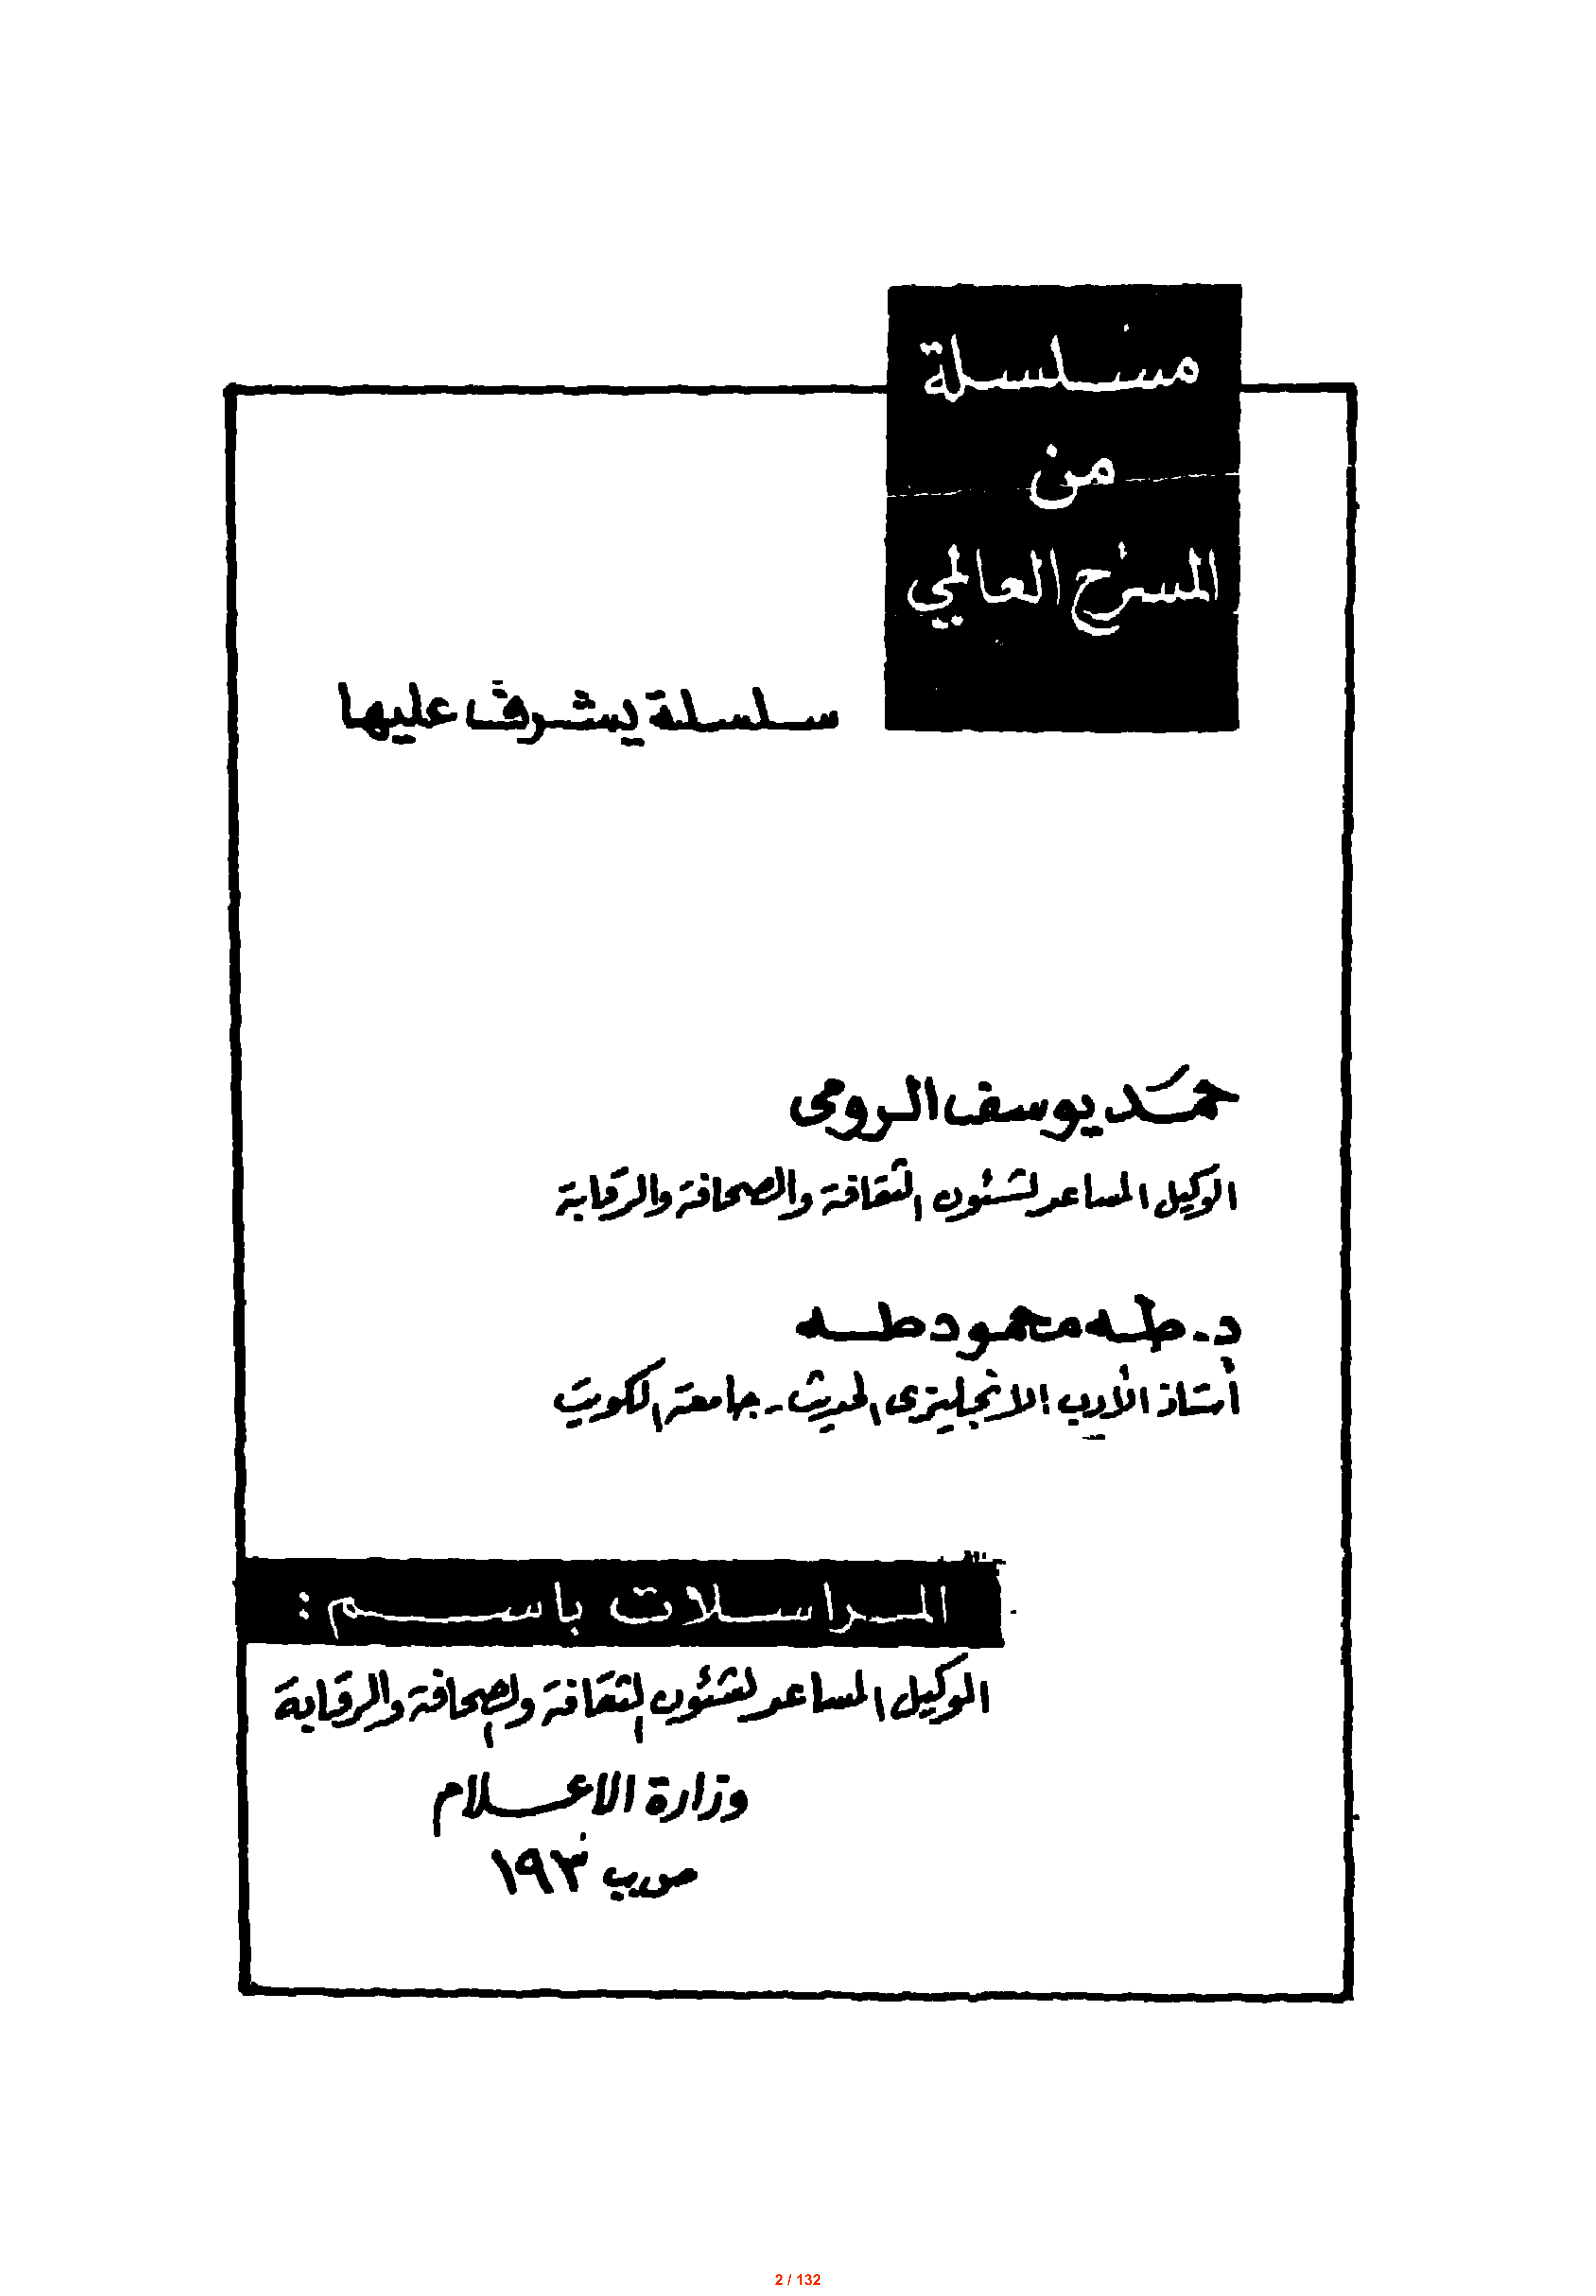 مسلسلة
من
المسرح العالمي
سلسلة يشرف عليها
حمد يوسف الرومى
الوكيل المساعد لشئون الثقافة والصحافة والرقابة
د. طه محمود طه
أستاذ الأدب الانجليزى الحديث - جامعة الكويت
المراسلات باسم :
الوكيل المساعد لشئون الثقافة والصحافة والرقابة
وزارة الاعلام
ص.ب ١٩٣
2 / 132